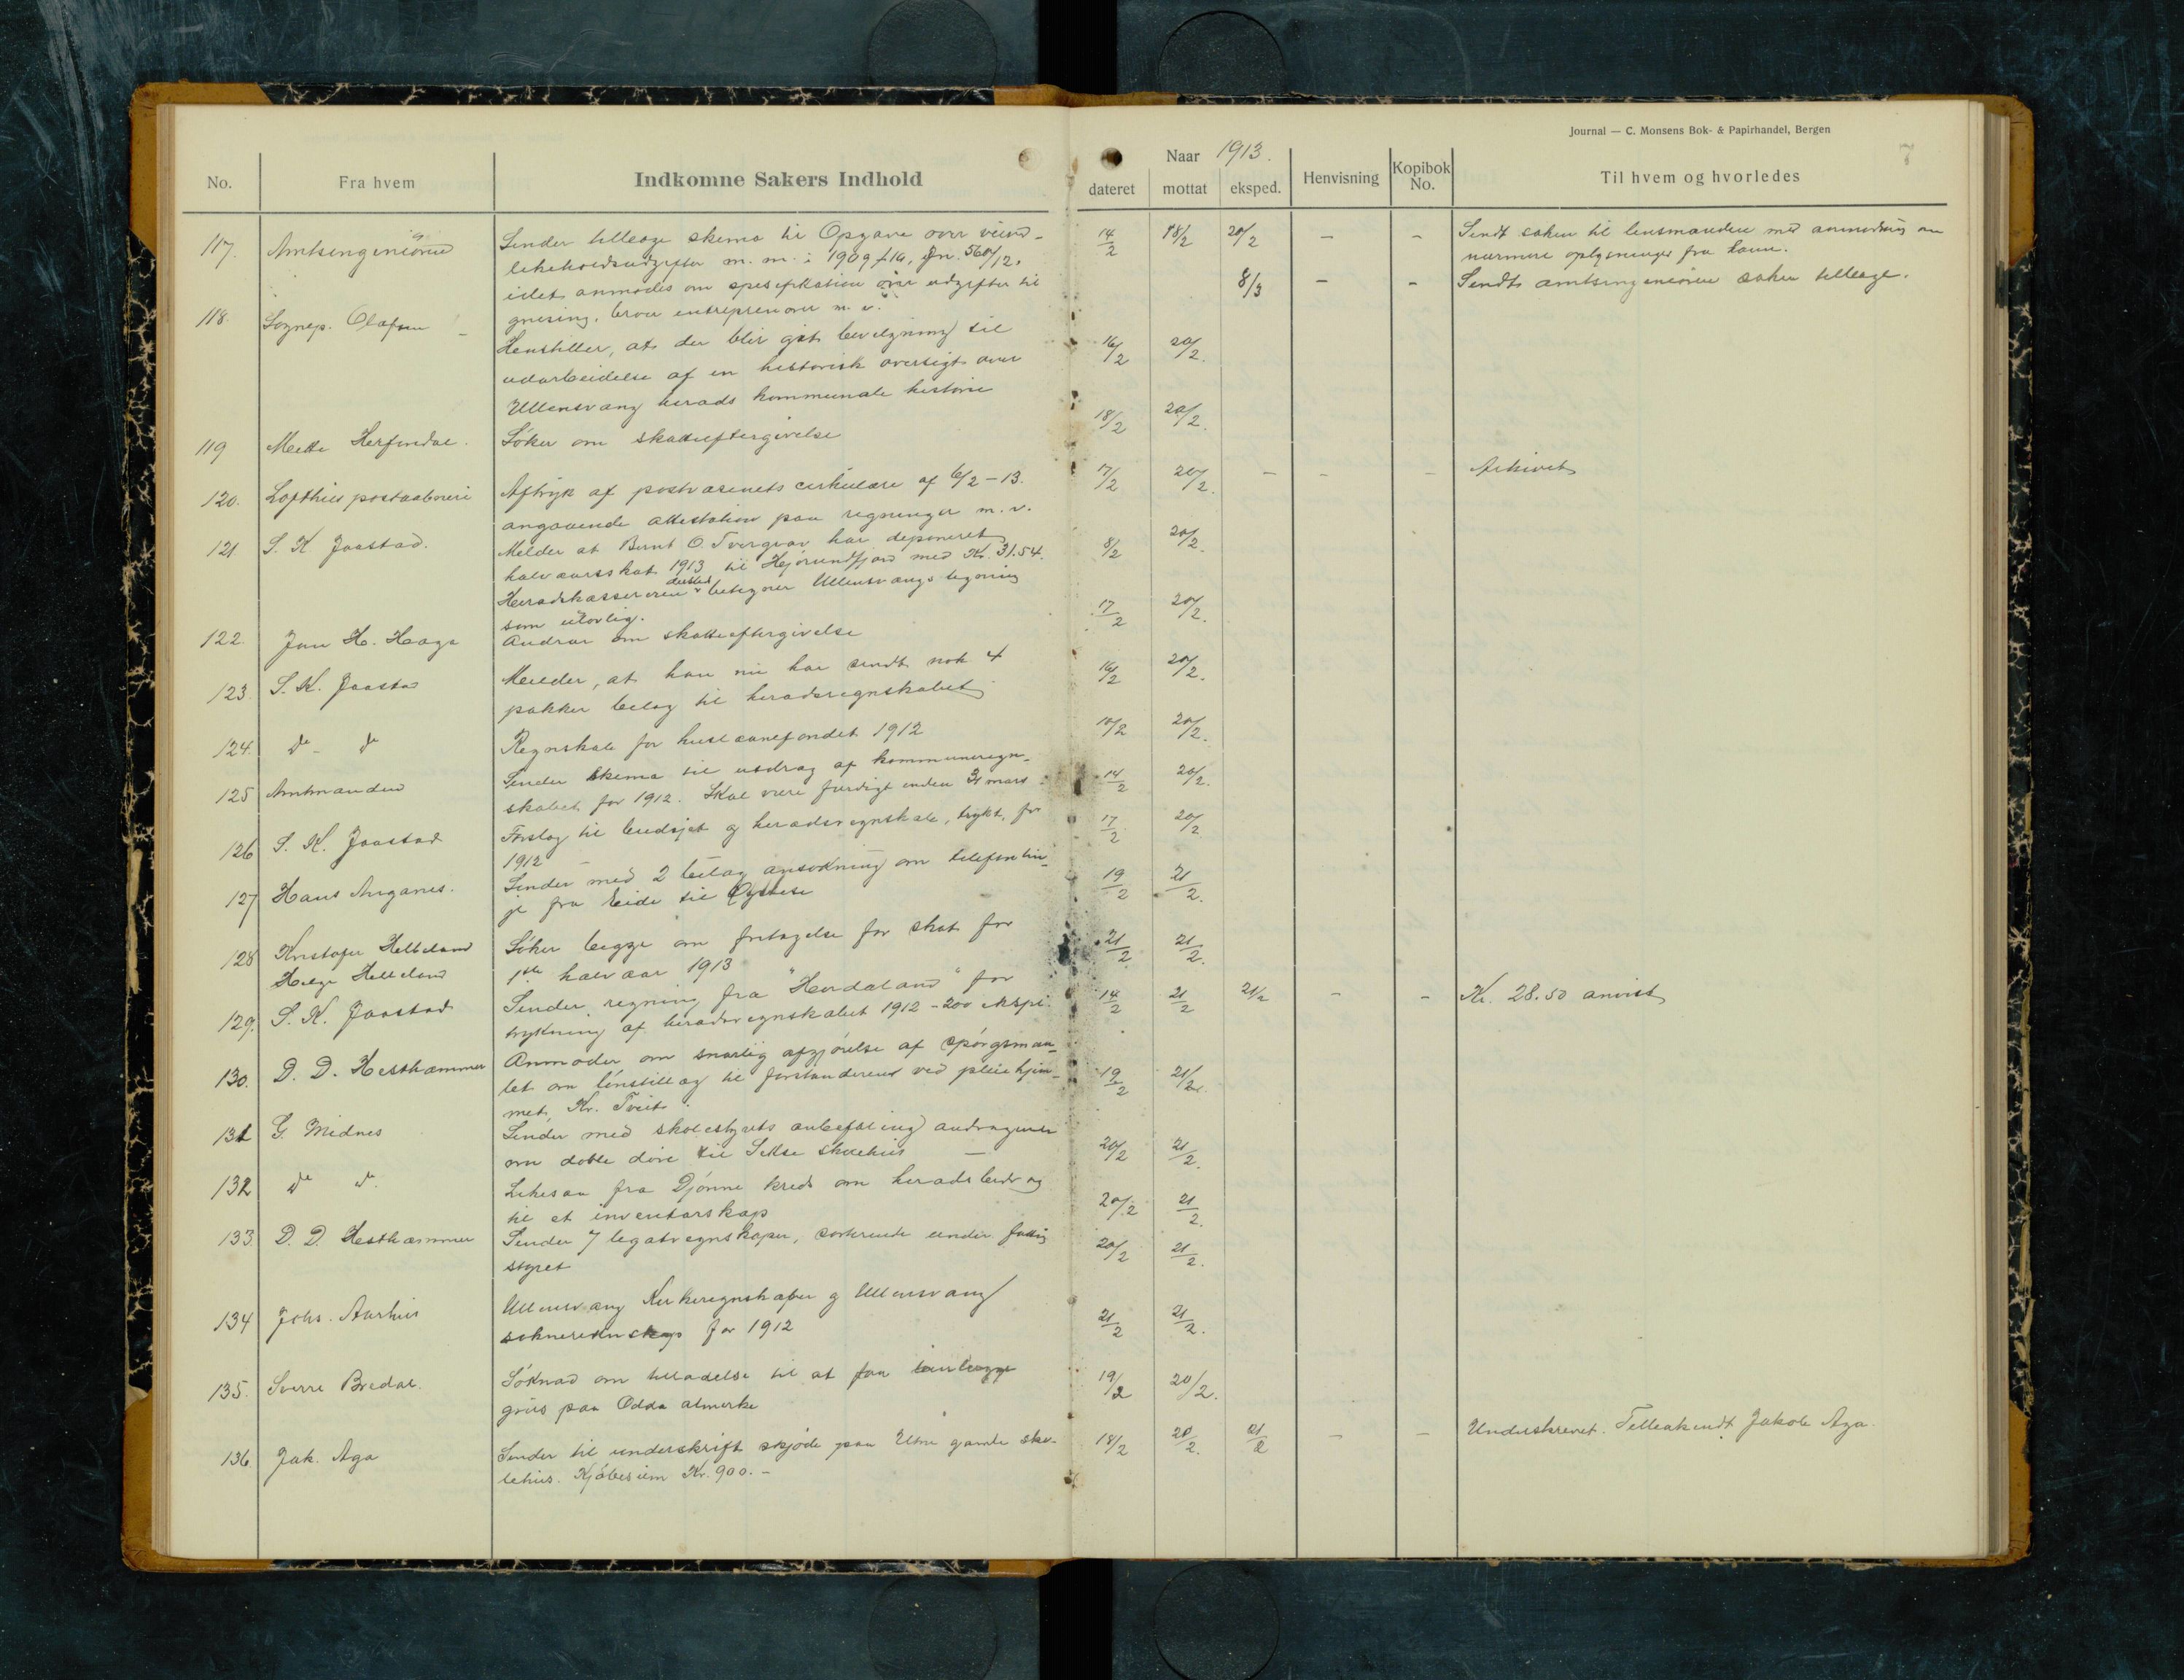 Journal — C. Monsens Bok- & Papirhandel, Bergen
7
No. Fra hvem Indkomne Sakers Indhold
Naar 1913.
dateret mottat eksped. Henvisning Kopibok No. Til hvem og hvorledes
117. Amtsingeniøren Sender tilleage skema til Opgave over veived- 14/2 18/2 20/2 – – Sendt saken til lensmanden med anmodning om
likeholdsudgifter m. m. i 1909 Jn. 560/12, nærmere oplysninger fra ham.
idet anmodes om spesifikation over udgifter til 8/3 – – Sendt amtsingeniøren saken tilleage.
grusing, broer entreprenører m. v.
118. Sognep. Olafsen – Henstiller, at der blir git bevilgning til 16/2 20/2.
udarbeidelse af en historisk oversigt over
Ullensvang herads kommunale historie
119 Mette Herfindal. Søker om skatteeftergivelse 18/2 20/2.
120. Lofthus postaabneri Aftryk af postvæsenets cirkulære af 6/2 – 13. 17/2 20/2. – – – Arkivet
angaaende attestation paa regninger m. v.
121 S. K Jaastad. Melder at Bernt O. har deponeret 8/2 20/2.
halvaarsskat 1913 til Hjørundfjord med Kr. 31.54.
Heradskassereren dersteds betegner Ullensvangs ligning
som ulovlig.
122. Jon H. Haga Andrar om skatteeftergivelse 17/2 20/2.
123. S. K. Jaasta Melder, at han nu har sendt nok 4 16/2 20/2.
pakker bilag til heradsregnskabet
124. do – do Regnskab for huslaanefondet 1912 10/2 20/2.
125 Amtmanden Sender skema til utdrag af kommuneregn- 14/2 20/2.
skabet for 1912. Skal være færdigt inden 31 mars
126 S. K. Jaastad Forslag til budsjet og heradsregnskab, trykt, for 17/2 20/2
1912
127 Hans Auganes. Sender med 2 bilag ansøkning om telefonlin- 19/2 21/2.
je fra Eide til Øystese
128 Kristofer Helleland Søker begge om fritagelse for skat for 21/2 21/2.
Helge Helleland 1ste halvaar 1913
129. S. K. Jaastad Sender regning fra "Hordaland" for 14/2 21/2 21/2 – – Kr. 28.50 anvist
trykning af heradsregnskabet 1912 – 200 ekspl.
130. D. D. Hesthammer Anmoder om snarlig afgjørelse af spørgsmaa- 19/2 21/2.
let om lønstillæg til forstanderen ved pleiehjem-
met, Kr. Tveit.
131 G. Midnes Sender med skolestyrets anbefaling andragende 20/2 21/2.
om doble døre til Sekse skolehus –
132 do do. Likesaa fra Djønne kreds om heradsbidrag 20/2 21/2.
til et inventarskap
133. D. D. Hesthammer Sender 7 legatregnskaper, sorterende under fattig 20/2 21/2.
styret
134 Johs. Aarhus Ullensvang Kirkeregnskaper og Ullensvang 21/2 21/2.
for 1912
135. Sverre Bredal. Søknad om tilladelse til at faa
19/2 20/2.
grus paa Odda almerke
136. Jak. Aga Sender til underskrift skjøde paa Utne gamle sko- 18/2 20/2. 21/2 – – Underskrevet. Tilleakendt Jakob Aga.
lehus. Kjøbesum Kr. 900. –